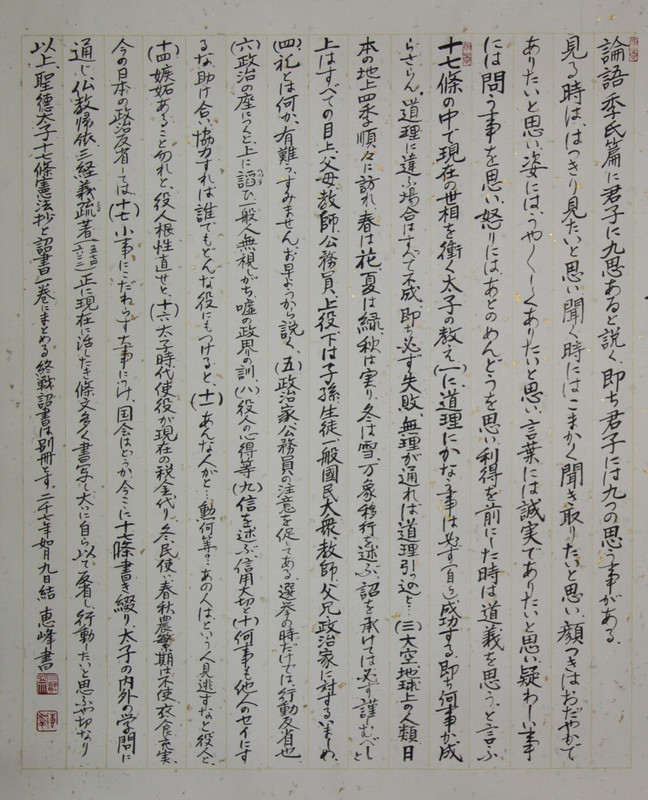 論語 季氏篇に君子に九思あると説く、即ち君子には九つの思う事がある。
見る時は、はっきり見たいと思い聞く時にはこまかく聞き取りたいと思い、顔つきはおだやかで
ありたいと思い姿には、うやうやしくありたいと思い、言葉には誠実でありたいと思い、疑わしい事
には問う事を思い、怒りにはあとのめんどうを思い利得を前にした時は道義を思う、と言ふ
十七條の中で現在の世相を衝く太子の教え、(一)に、道理にかなふ事は必ず(自ら)成功する、即ち何事か成
らざらん。道理に違ふ場合はすべて不成、即ち必ず失敗、無理が通れば道理引っ込むと…(三)大空、地球上の人類 日
本の地上四季順々に訪れ、春は花、夏は緑、秋は実り、冬は雪、万象移行を述ぶ、詔を承けては必ず謹むべしと
上はすべての目上、父母、教師、公務員、上役、下は子孫、生徒、一般国民大衆、教師、父兄、政治家に対するいましめ、
(四)礼とは何か、有難う、すみません、お早ようから説く、(五)政治家、公務員の注意を促してある、選挙の時だけでは、行動反省也
(六)政治の座につくと、上に諂ひ一般人無視しがち、嘘の政界の訓、(八)役人の心得等(九)信を述ぶ、信用大切と(十)何事も他人のセイにす
るな、助け合い協力すれば誰でもどんな役にもつけると、(十一)あんな人がと…勲何等の…あの人は、という人見逃すなと役人と、
(十四)嫉妬あること勿れと、役人根性直せと、(十六)太子時代使役が現在の税金代り、冬民使い春秋農繁期は不使、衣食充実、
今の日本の政治反省しては、(十七)小事にこだわらず大事にはげみ、国会はどうか、今ここに十七條書き綴り、太子の内外の学問に
通じ、仏教帰依、三経義疏著(五七四-六二二)正に現在に活したき條文多く書写し大いに自ら以て反省し、行動したいと思ふや切なり
以上、聖徳太子十七條憲法抄と詔書一巻にまとめる、終戦詔書は別冊とす、二千七年如月九日結 恵峰書